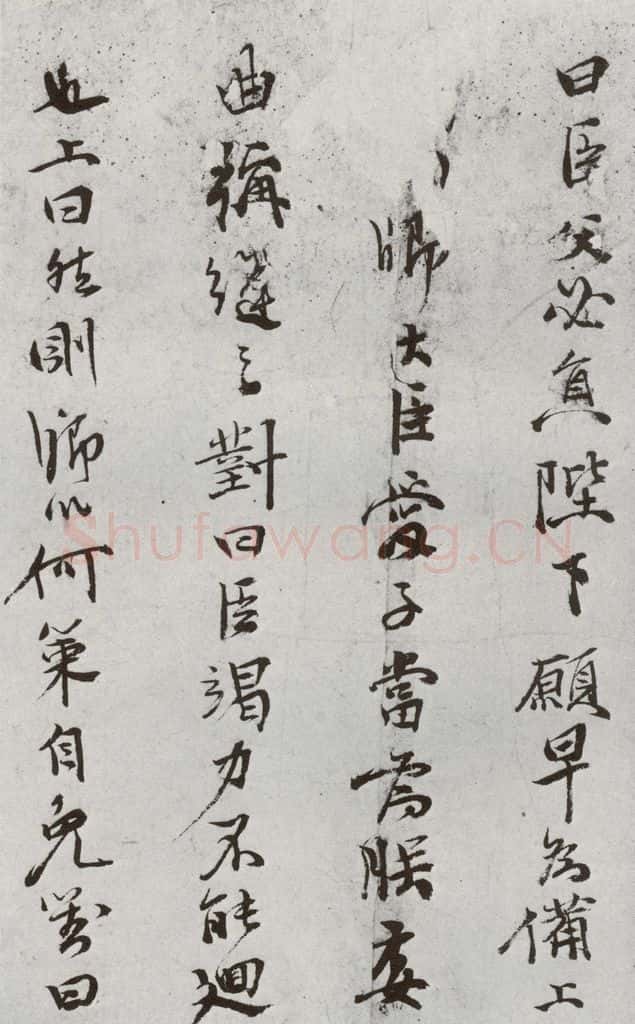 曰臣父必負陛下願早為備上
卿大臣愛子當為朕委
曲彌縫之對曰臣竭力不能廻
也上曰然則卿以何策自免對曰
Shufawang.CN